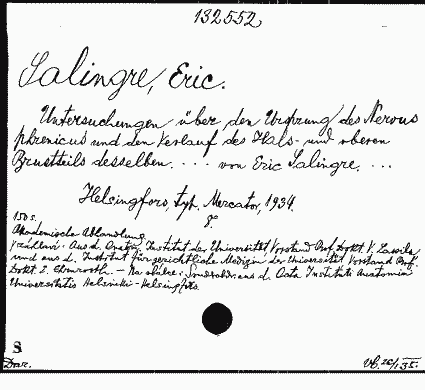 132552
Salingre, Eric.
Untersuchungen über den Ursprung des Nervus
phrenicus und den Verlauf des Hals- und oberen
Brustteils desselben. ... von Eric Salingre. ...
Helsingfors, typ. Mercator, 1934.
8°.
150 s.
Akademische Abhandlung
Aus d. Anat. Institut der Universität Vorstand Prof. Dokt.
und aus d. Institut für gerichtliche Medizin der Universität Vorstand Prof.
Dokt. Sonderabdr. aus d. Acta Instituti Anatomici
Universitatis Helsinki-Helsingfors.
S